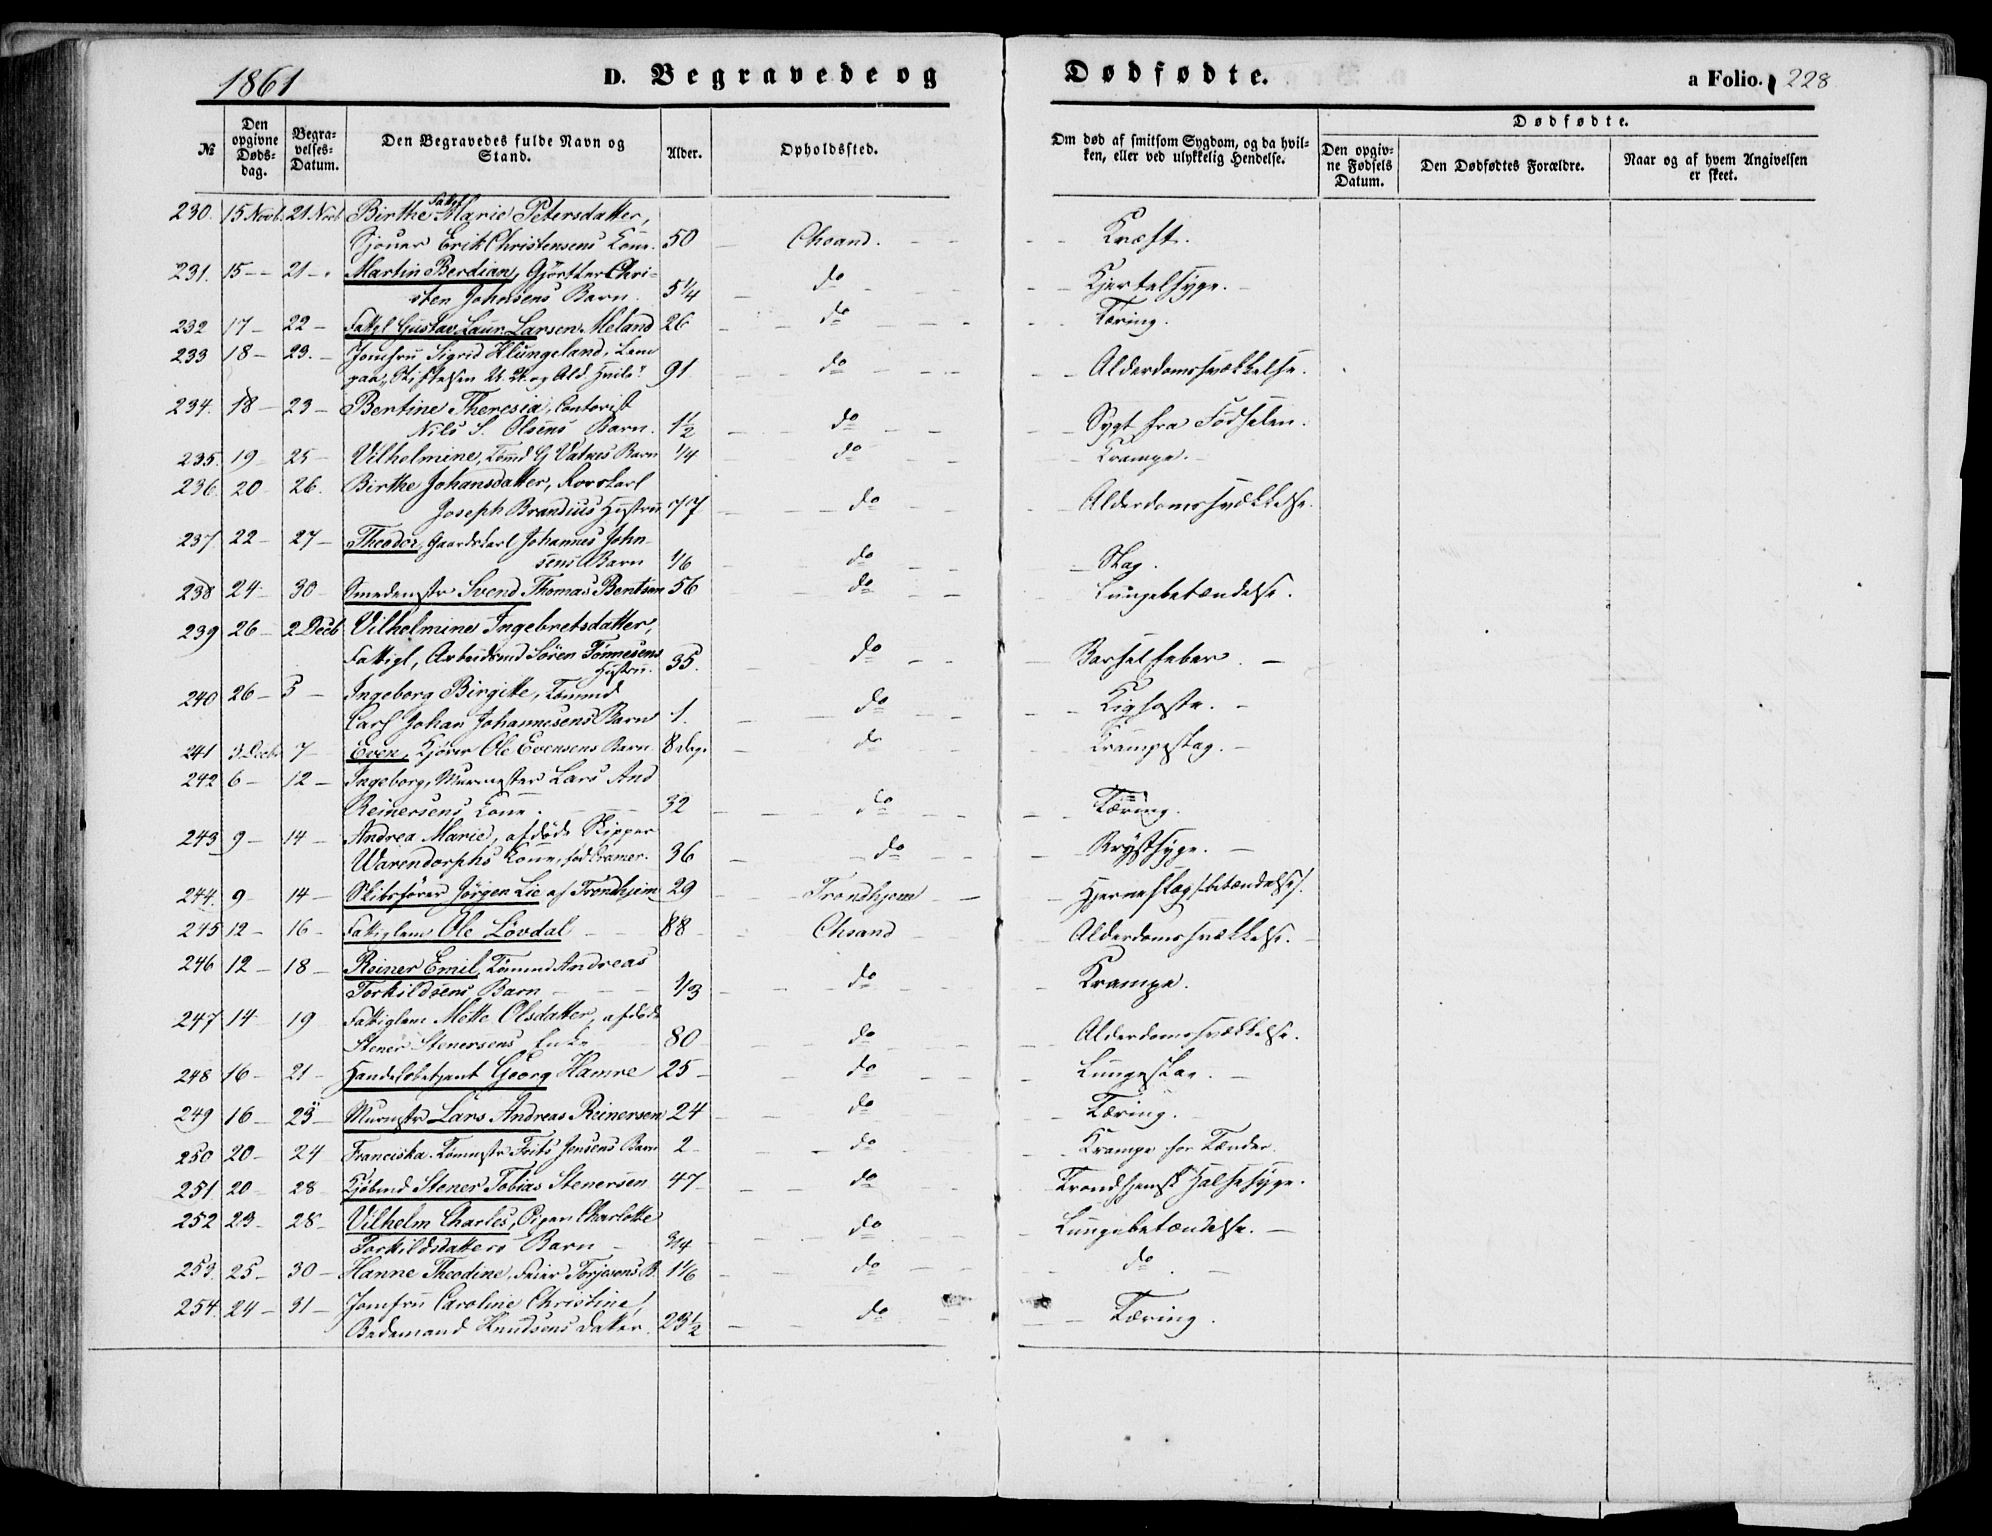 1861
D. Begravede og Dødfødte.
a Folio. 228
№
Den opgivne Døds-dag.
Begra-velses-Datum.
Den Begravedes fulde Navn og Stand.
Alder.
Opholdssted.
Om død af smitsom Sygdom, og da hvil-ken, eller ved ulykkelig Hendelse.
Dødfødte.
Den opgiv-ne Fødsels Datum.
Den Dødfødtes Forældre.
Naar og af hvem Angivelsen er skeet.
230. 15 Novb. 21 Novb Birthe Marie Petersdatter,
Sjouer Erik Christensens Kone. 50 Chsand. Kræft.
231. 15 - 21 - Martin Berdian, Gjørtler Chri-
sten Johnsens Barn. 5 1/4 do Kjertelsyge.
232 17 - 22 - Fattgl Gustav Laur. Larsen Meland 26 do Tæring.
233 18 - 23. - Jomfru Sigrid Klungeland, Lem
paa Stiftelsen og Ald. Hvile 91 do Alderdomssvækkelse.
234. 18 - 23 - Bertine Theresia, Contorist
Nils S. Olsens Barn. 1 1/2 do Sygt fra Fødselen.
235. 19 - 25 - Vilhelmine, Tømd G Vatnes Barn 1/4 do Krampe.
236 20 - 26. Birthe Johansdatter, Rorskarl
Joseph Brandius Hustru 77 do Alderdomssvækkelse.
237 22 - 27 - Theodor, Gaardskarl Johannes John-
sens Barn 1/6 do Slag.
238 24 - 30 - Smedemstr Svend Thomas Bentsen 56 do Lungebetændelse.
239 26 - 2 Decb Vilhelmine Ingebretsdatter,
Fattigl, Arbeidsmd Søren Tønnesens
Hustru. 35. do Barselfeber.
240 26 - 3 - Ingeborg Birgitte, Tømmd
Carl Johan Johannesens Barn 1. do Kighoste.
241 3 Decbr 7 - Even, Kjører Ole Evensens Barn 8 Dag. do Krampeslag.
242 6 - 12 - Ingeborg, Murmester Lars And
Reinersens Kone. 32 do Tæring.
243 9 - 14 - Andrea Marie, afdøde Skipper
Warendorphs Kone, fød Cramer. 36 do Brystsyge.
244. 9 - 14 - Skibsfører Jørgen Lie af Trondhjem 29 Trondhjem Hjerneslag /:betændelse:/.
245 12 - 16 - Fattiglem Ole Løvdal 88 Chsand Alderdomssvækkelse.
246 12 - 18 - Reiner Emil, Tømmd Andreas
Torkildsens Barn 1/3 do Krampe.
247 14 - 19 Fattiglem Mette Olsdatter, afdøde
Stener Stenersens Enke 80 do Alderdomssvækkelse.
248 16 - 21 - Handelsbetjent Georg Hamre 25 - do Lungeslag.
249 16 - 23 - Murmstr Lars Andreas Reinersen 24 do Tæring.
250 20 - 24 Franciska. Tømmstr Frits Jensens Barn 2 - do Krampe for Tænder.
251 20 - 28 - Kjøbmd Stener Tobias Stenersen 47 - do Trondhjemsk Halssyge.
252 23 - 28 - Vilhelm Charles, Pigen Charlotte
Torkildsdatters Barn 3/4 do Lungebetændelse.
253. 25 - 30 - Hanne Theodine, Feier Torjesens B. 1 1/6 do do
254. 24 - 31 - Jomfru Caroline Christine,
Bedemand Knudsens Datter. 23 1/2 do Tæring.